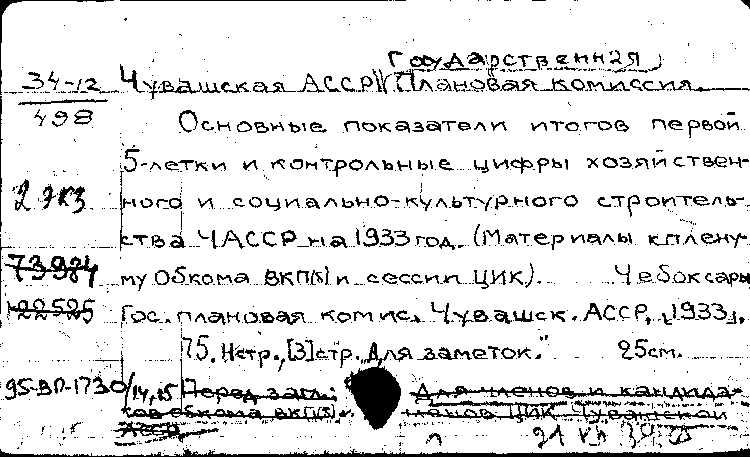 Государственная
34-12 Чувашская АССР. Плановая комиссия.
498 Основные показатели итогов первой
5-летки и контрольные цифры хозяйствен-
2 экз ного и социально-культурного строитель-
ства ЧАССР на 1933 год. (Материалы к плену-
73984 му Обкома ВКП(б) и сессии ЦИК). Чебоксары
22525 Гос. плановая комис. Чувашск. АССР, [1933],
75. Нстр., [3] стр. „Для заметок." 25см.
95-ВП-1730/14,15 Перед загл.: Для членов и кандида-
тов обкома ВКП(б) и членов ЦИК Чувашской
АССР
21